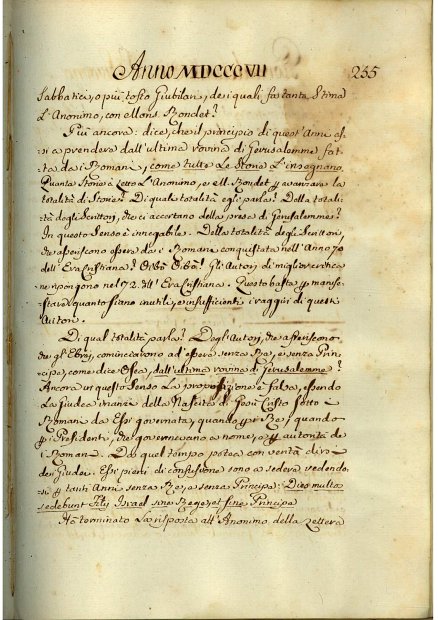 Anno MDCCCVII 235
Sabbatici, o più tosto Giubilari, de i quali fa tanta stima
L'Anonimo, con ellons Bondet?
Più ancora: dice, che il principio di quest'Anni
si a prendere dall'ultima rovina di Gerusalemme fat-
ta da i Romani, come tutte Le Storie L'insegnano.
Quante Storie à Letto L'Anonimo, e ell. Bondet per avanzare la
totalità di Storie? Di qual totalità egli parla? Della totali-
tà degli Scrittori, che ci accertano della presa di Gerusalemme?
In questo senso è innegabile. Della totalità degli Scrittori,
che asseriscono essere da i Romani conquistata nell'Anno 70
dell'Era Cristiana? Oibò Oibò! Gli Autori di miglior critica
ne ripongono nel 72. dell'Era Cristiana. Questo basta per manife-
stare quanto siano inutili, e insufficienti i raggiri di questi
Autori.
Di qual totalità parla? Degli Autori, che asseriscono
che gl'Ebrei, cominciarono ad essere senza Re, e senza Prin-
cipe, come dice Osea, dall'ultima rovina di Gerusalemme?
Ancora in questo senso La proposizione è falsa, essendo
La Giudea inanzi della Nascita di Gesù Cristo sotto i
Romani da Essi governata, quando per Re, quando
per i Presidenti, che governavano a nome, o per autorità de
i Romani. Da qual tempo potea con verità dirse
de i Giudei. Essi pieni di confusione sono a sedere vedendo-
si per tanti Anni senza Re, e senza Principe: Dies multos
sedebunt Filij Israel sine Rege, et sine Principe
Hà terminato La risposta all'Anonimo della Lettera